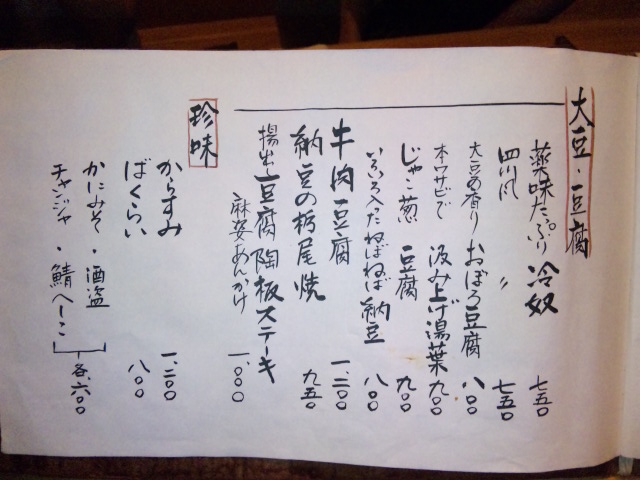 大豆・豆腐
薬味たっぷり 冷奴 七五〇
四川風 〃 七五〇
大豆の香り おぼろ豆腐 八〇〇
本ワサビで 汲み上げ湯葉 九〇〇
じゃこ葱 豆腐 九〇〇
いろいろ入たねばねば納豆 八〇〇
牛肉豆腐 一、二〇〇
納豆の栃尾焼 九五〇
揚出し豆腐陶板ステーキ
麻婆あんかけ 一、〇〇〇
珍味
からすみ 一、二〇〇
ばくらい 八〇〇
かにみそ・酒盗
チャンジャ・鯖へしこ 各、六〇〇